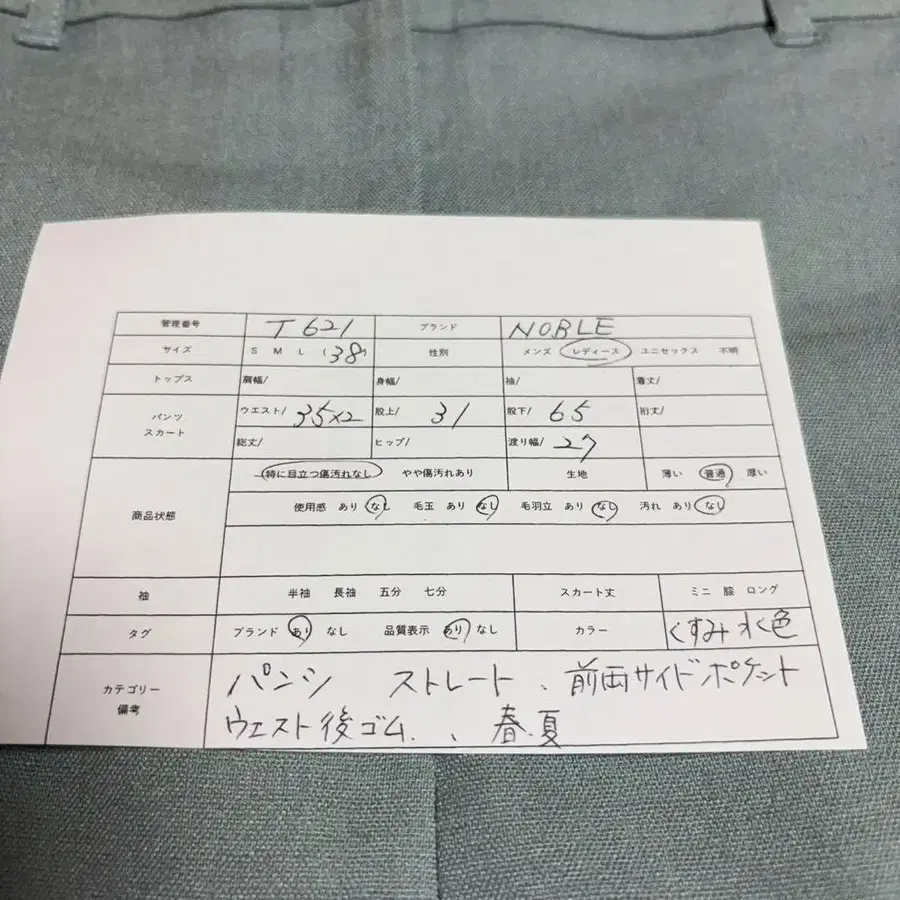 管理番号 T621 ブランド NOBLE
サイズ S M L (38) 性別 メンズ レディース ユニセックス 不明
トップス 肩幅/ 身幅/ 袖/ 着丈/
パンツ スカート ウエスト/ 35×2 股上/ 31 股下/ 65 裄丈/
総丈/ ヒップ/ 渡り幅/ 27
商品状態 特に目立つ傷汚れなし やや傷汚れあり 生地 薄い 普通 厚い
使用感 あり なし 毛玉 あり なし 毛羽立 あり なし 汚れ あり なし
袖 半袖 長袖 五分 七分 スカート丈 ミニ 膝 ロング
タグ ブランド あり なし 品質表示 あり なし カラー くすみ水色
カテゴリー 備考 パンツ ストレート、前両サイドポケット
ウエスト後ゴム、春.夏